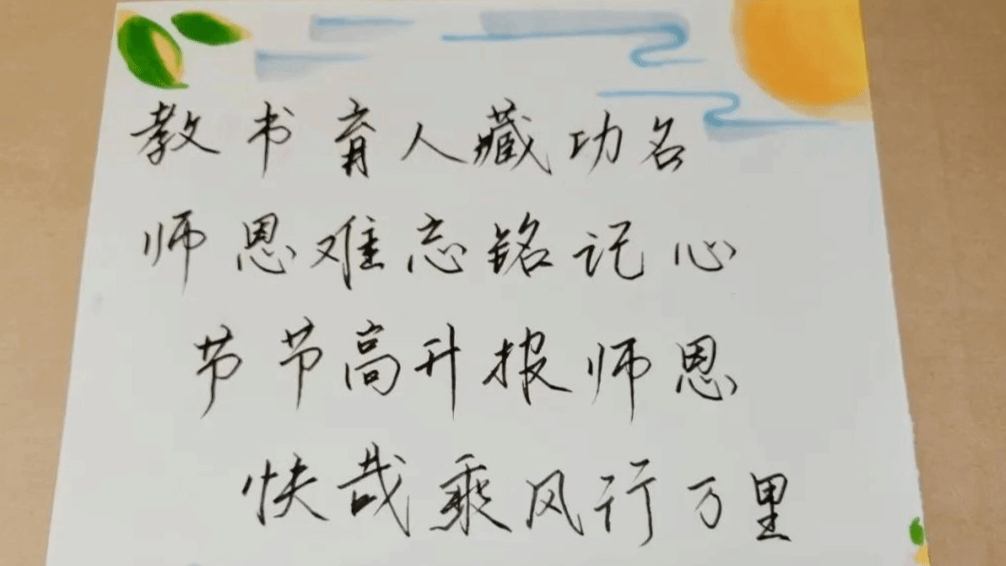 教书育人藏功名
师恩难忘铭记心
节节高升报师恩
快哉乘风行万里